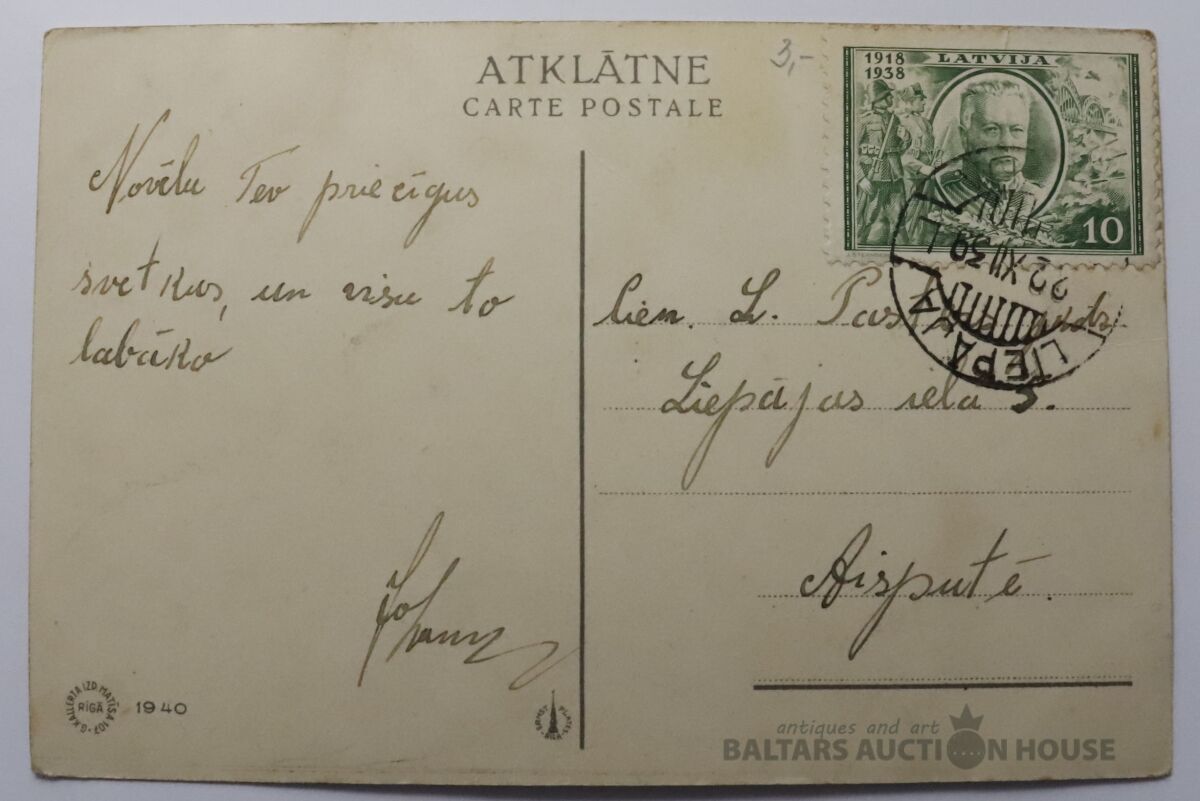 ATKLĀTNE
CARTE POSTALE
3,-
1918
1938
LATVIJA
10
LIEPĀJA
22 XII 39
Novēlu Tev priecīgus
svētkus, un visu to
labāko
Cien. L.
Liepājas iela 5.
Aizputē.
G. KALLERTA IZD. MATĪSA 107
RĪGĀ
1940
ERNST PLATES RIGA
antiques and art
BALTARS AUCTION HOUSE